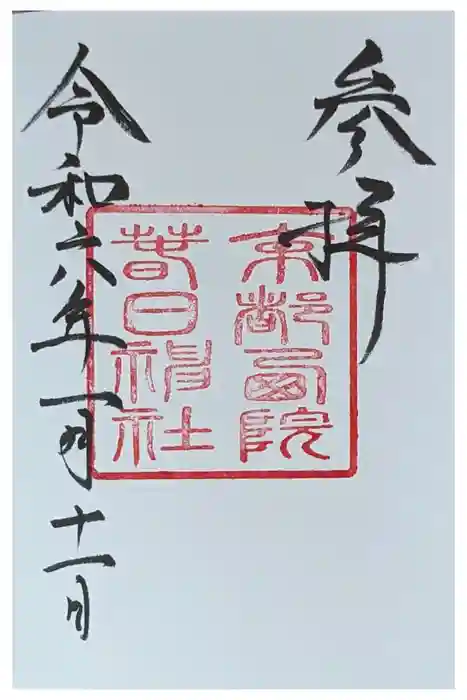 参拝
京都西院
春日神社
令和六年一月十一日